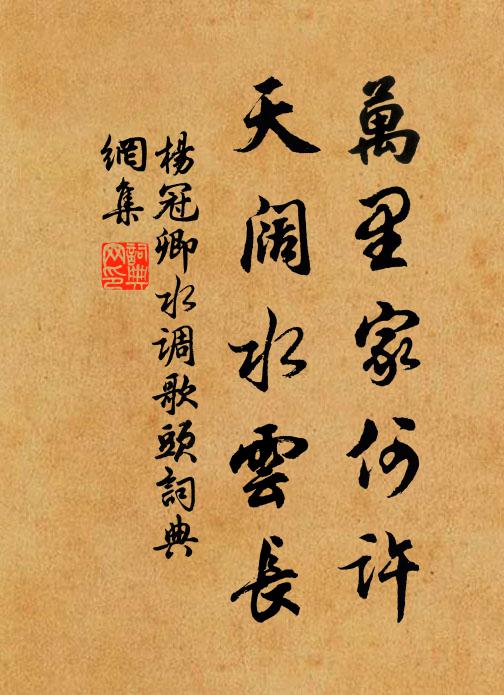 萬里家何許
天阔水雲長
楊冠卿水调歌頭詞典
網集
詞典網印